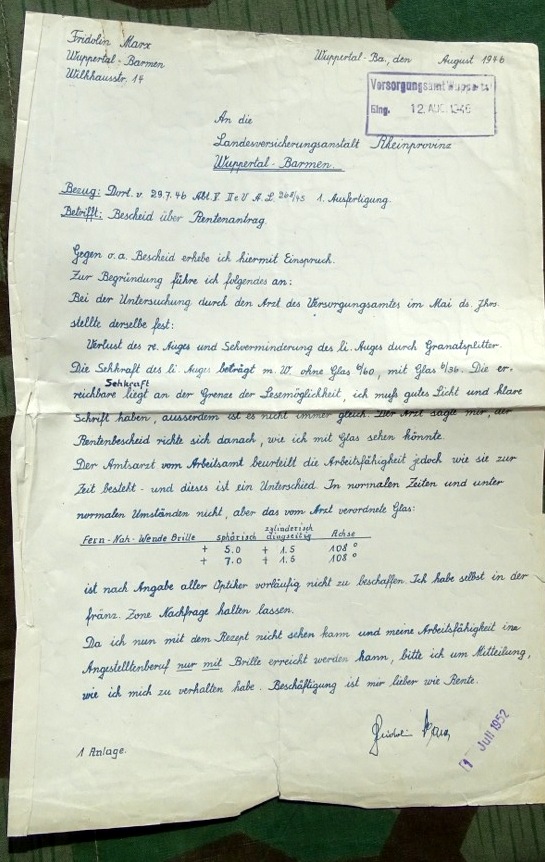 Fridolin Marx
Wuppertal-Barmen
Wilkhausstr. 14
Wuppertal-Ba., den August 1946
Versorgungsamt Wuppertal
Eing. 12. AUG. 1946
An die
Landesversicherungsanstalt Rheinprovinz
Wuppertal-Barmen.
Bezug: Dort. v. 29.7.46 Abt. V II e V A.L. 1. Ausfertigung.
Betrifft: Bescheid über Rentenantrag.
Gegen o.a. Bescheid erhebe ich hiermit Einspruch.
Zur Begründung führe ich folgendes an:
Bei der Untersuchung durch den Arzt des Versorgungsamtes im Mai ds. Jhrs.
stellte derselbe fest:
Verlust des re. Auges und Sehverminderung des li. Auges durch Granatsplitter.
Die Sehkraft des li. Auges beträgt m. W. ohne Glas 6/60, mit Glas 6/36. Die er-
Sehkraft
reichbare liegt an der Grenze der Lesemöglichkeit, ich muß gutes Licht und klare
Schrift haben, ausserdem ist es nicht immer gleich. Der Arzt sagte mir, der
Rentenbescheid richte sich danach, wie ich mit Glas sehen könnte.
Der Amtsarzt vom Arbeitsamt beurteilt die Arbeitsfähigkeit jedoch wie sie zur
Zeit besteht - und dieses ist ein Unterschied. In normalen Zeiten und unter
normalen Umständen nicht, aber das vom Arzt verordnete Glas:
zylinderisch
Fern-Nah-Wende Brille sphärisch Achse
+ 5.0 + 1.5 108°
+ 7.0 + 1.5 108°
ist nach Angabe aller Optiker vorläufig nicht zu beschaffen. Ich habe selbst in der
fränz. Zone Nachfrage halten lassen.
Da ich nun mit dem Rezept nicht sehen kann und meine Arbeitsfähigkeit im
Angestelltenberuf nur mit Brille erreicht werden kann, bitte ich um Mitteilung,
wie ich mich zu verhalten habe. Beschäftigung ist mir lieber wie Rente.
Fridolin Marx
1 Anlage.
Juli 1952